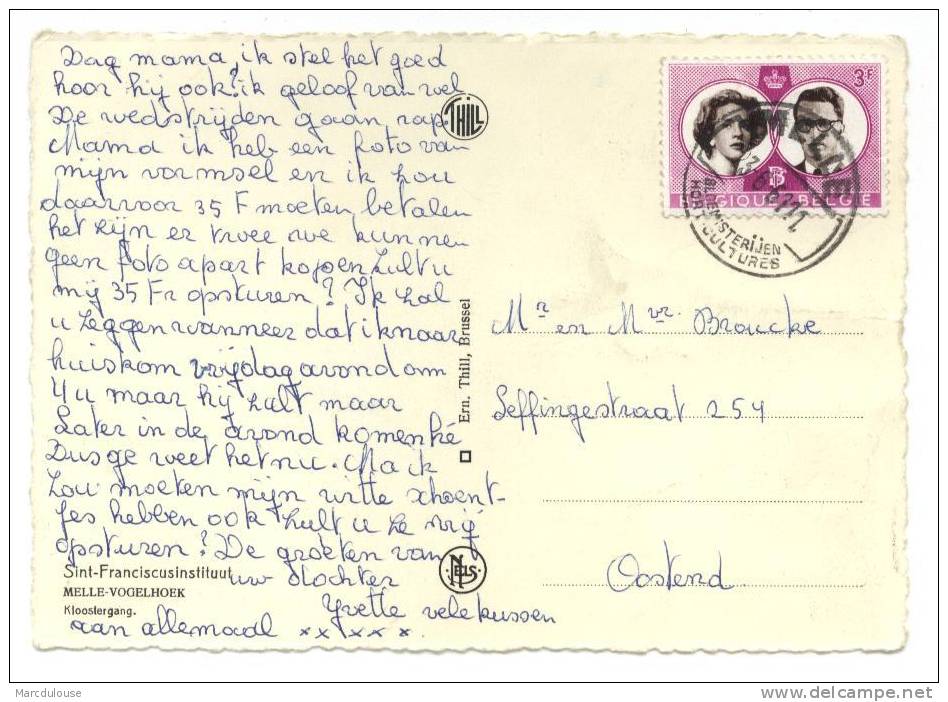 Dag mama, ik stel het goed
hoor hij ook? ik geloof van wel
De wedstrijden gaan rap.
Mama ik heb een foto van
mijn vormsel en ik zou
daarvoor 35 F moeten betalen
het zijn er twee we kunnen
geen foto apart kopen zult u
mij 35 Fr opsturen? Ik zal
u zeggen wanneer dat ik naar
huis kom vrijdag avond om
4 u maar hij zult maar
later in de avond komen hé
Dus ge weet het nu. Ma ik
zou moeten mijn witte schoent-
jes hebben ook zult u ze mij
opsturen? De groeten van
uw dochter
Yvette vele kussen
aan allemaal x x x x x.
Sint-Franciscusinstituut
MELLE-VOGELHOEK
Kloostergang.
THILL
Ern. Thill, Brussel
NELS
3F
BELGIQUE-BELGIË
MELLE
BLOEMISTERIJEN
HORTICULTURES
Mr en Mvr. Broucke
Leffingestraat 254
Oostend
Marcdulouse
www.delcampe.net